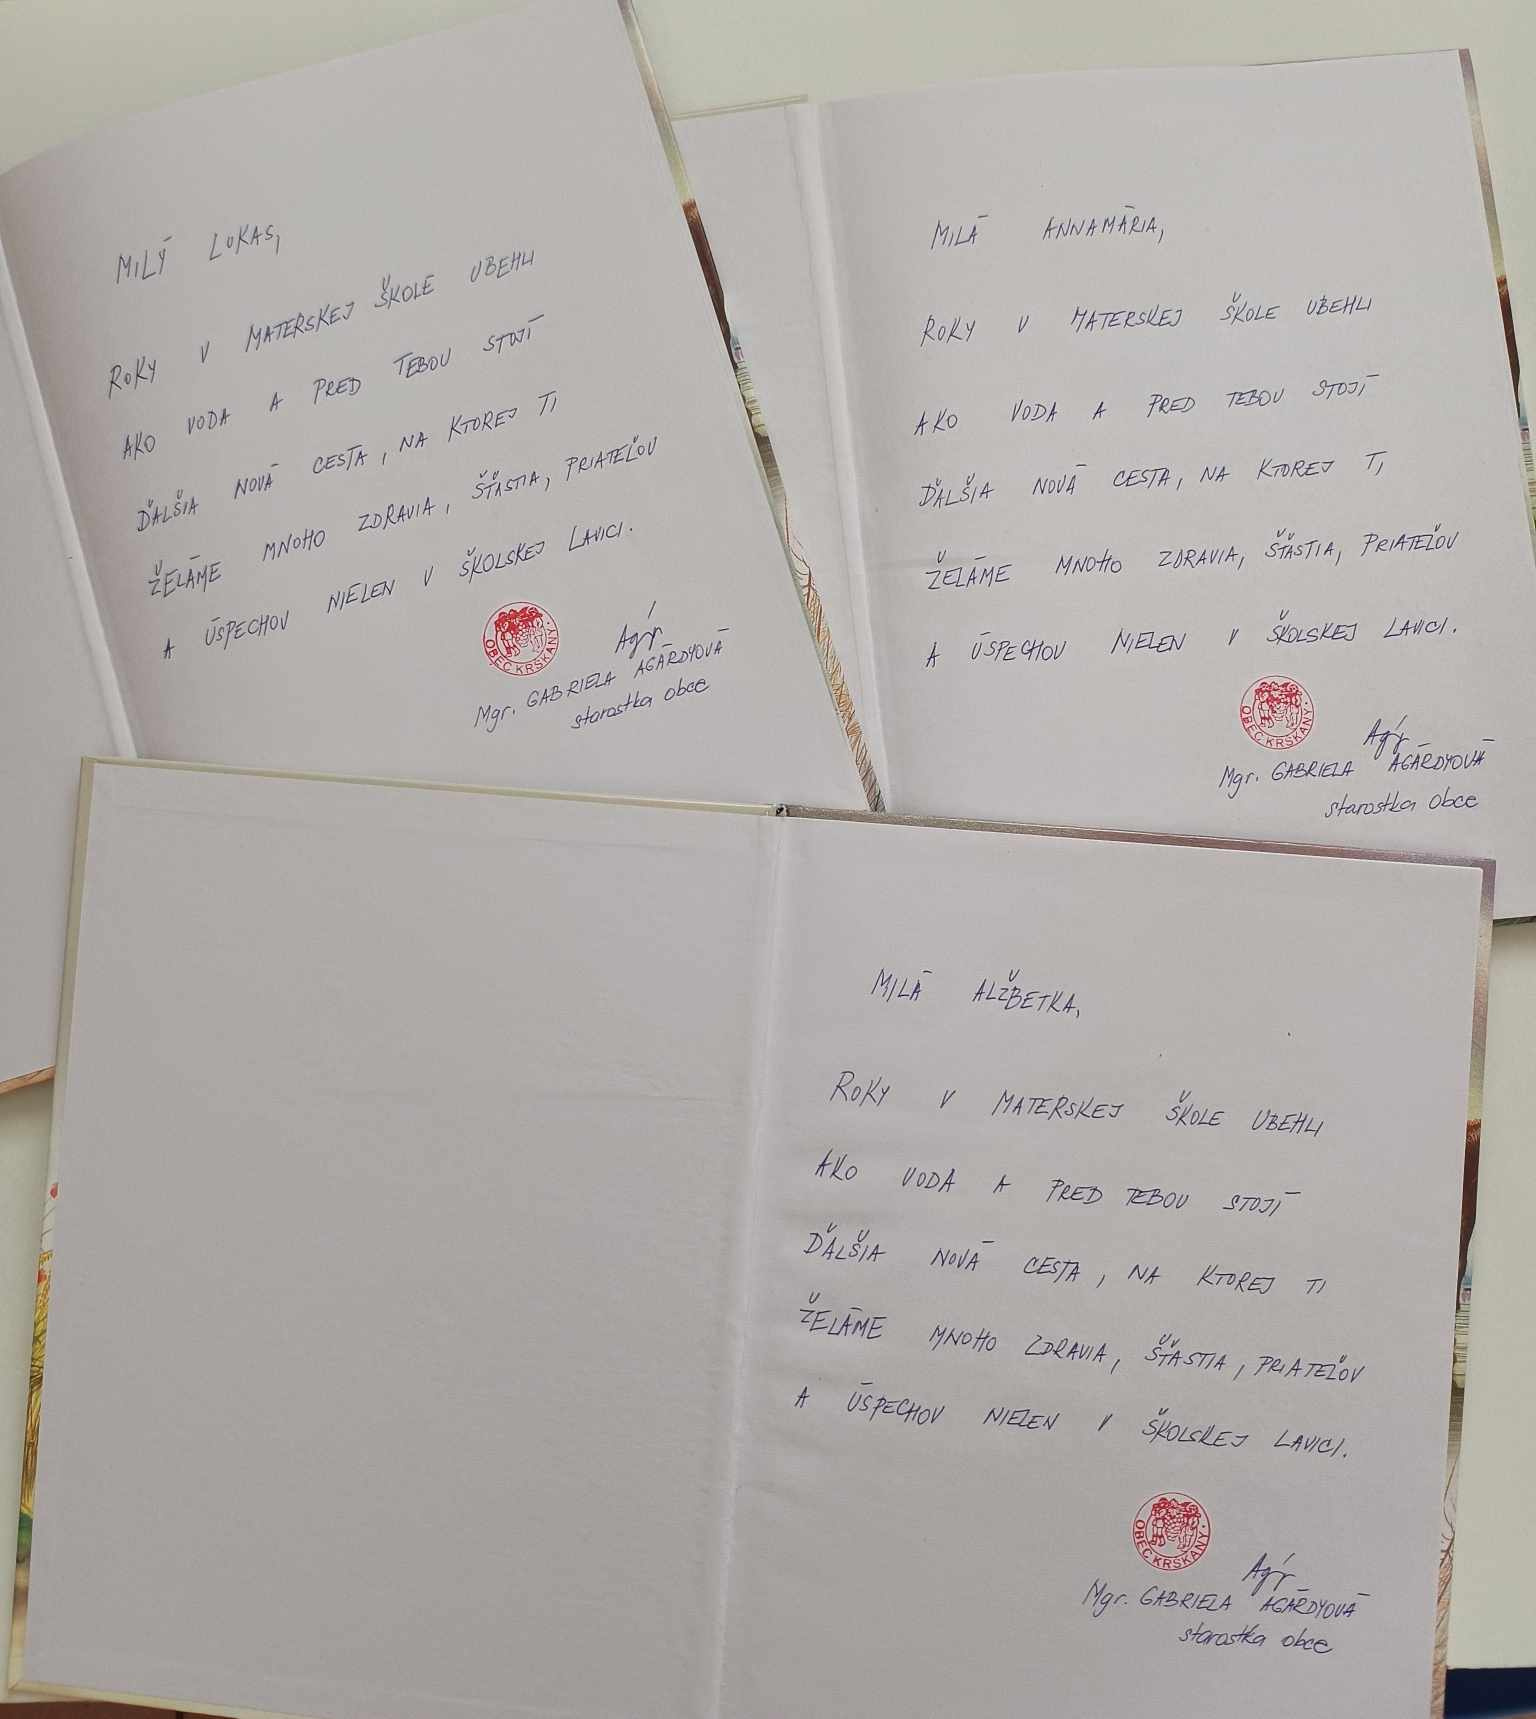 MILÝ LUKAS,
ROKY V MATERSKEJ ŠKOLE UBEHLI
AKO VODA A PRED TEBOU STOJÍ
ĎALŠIA NOVÁ CESTA, NA KTOREJ TI
ŽELÁME MNOHO ZDRAVIA, ŠŤASTIA, PRIATEĽOV
A ÚSPECHOV NIELEN V ŠKOLSKEJ LAVICI.
OBEC KRŠKANY
Mgr. GABRIELA AGÁRDYOVÁ
starostka obce
MILÁ ANNAMÁRIA,
ROKY V MATERSKEJ ŠKOLE UBEHLI
AKO VODA A PRED TEBOU STOJÍ
ĎALŠIA NOVÁ CESTA, NA KTOREJ TI
ŽELÁME MNOHO ZDRAVIA, ŠŤASTIA, PRIATEĽOV
A ÚSPECHOV NIELEN V ŠKOLSKEJ LAVICI.
OBEC KRŠKANY
Mgr. GABRIELA AGÁRDYOVÁ
starostka obce
MILÁ ALŽBETKA,
ROKY V MATERSKEJ ŠKOLE UBEHLI
AKO VODA A PRED TEBOU STOJÍ
ĎALŠIA NOVÁ CESTA, NA KTOREJ TI
ŽELÁME MNOHO ZDRAVIA, ŠŤASTIA, PRIATEĽOV
A ÚSPECHOV NIELEN V ŠKOLSKEJ LAVICI.
OBEC KRŠKANY
Mgr. GABRIELA AGÁRDYOVÁ
starostka obce